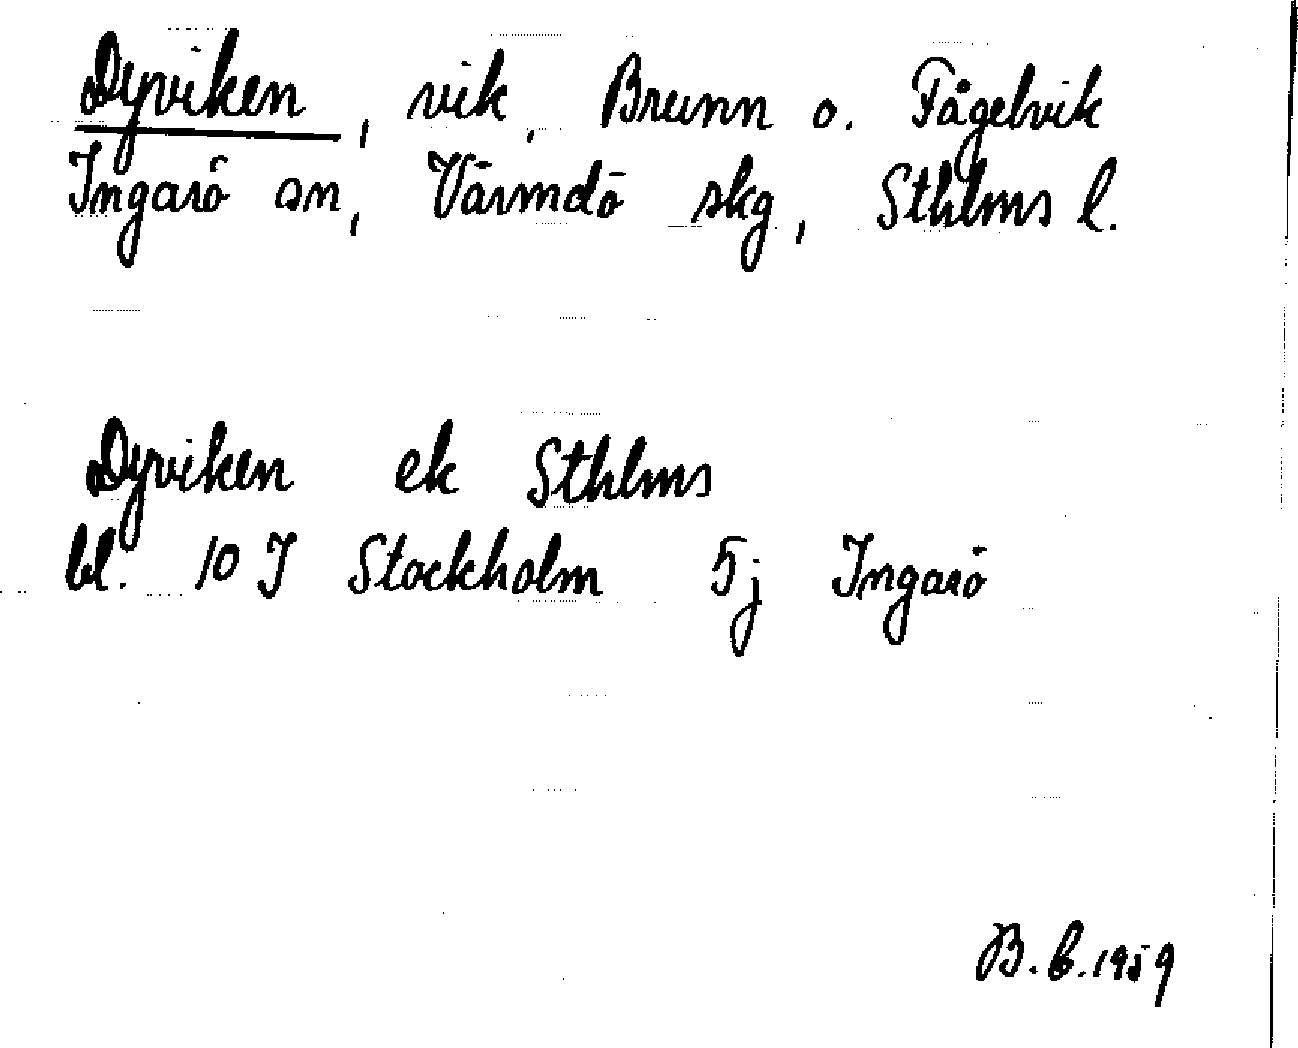 Dyviken, vik, Brunn o. Fågelvik
Ingarö sn, Värmdö skg, Sthlms l.
Dyviken ek Sthlms
bl. 10 I Stockholm 5j Ingarö
B. 6. 1959